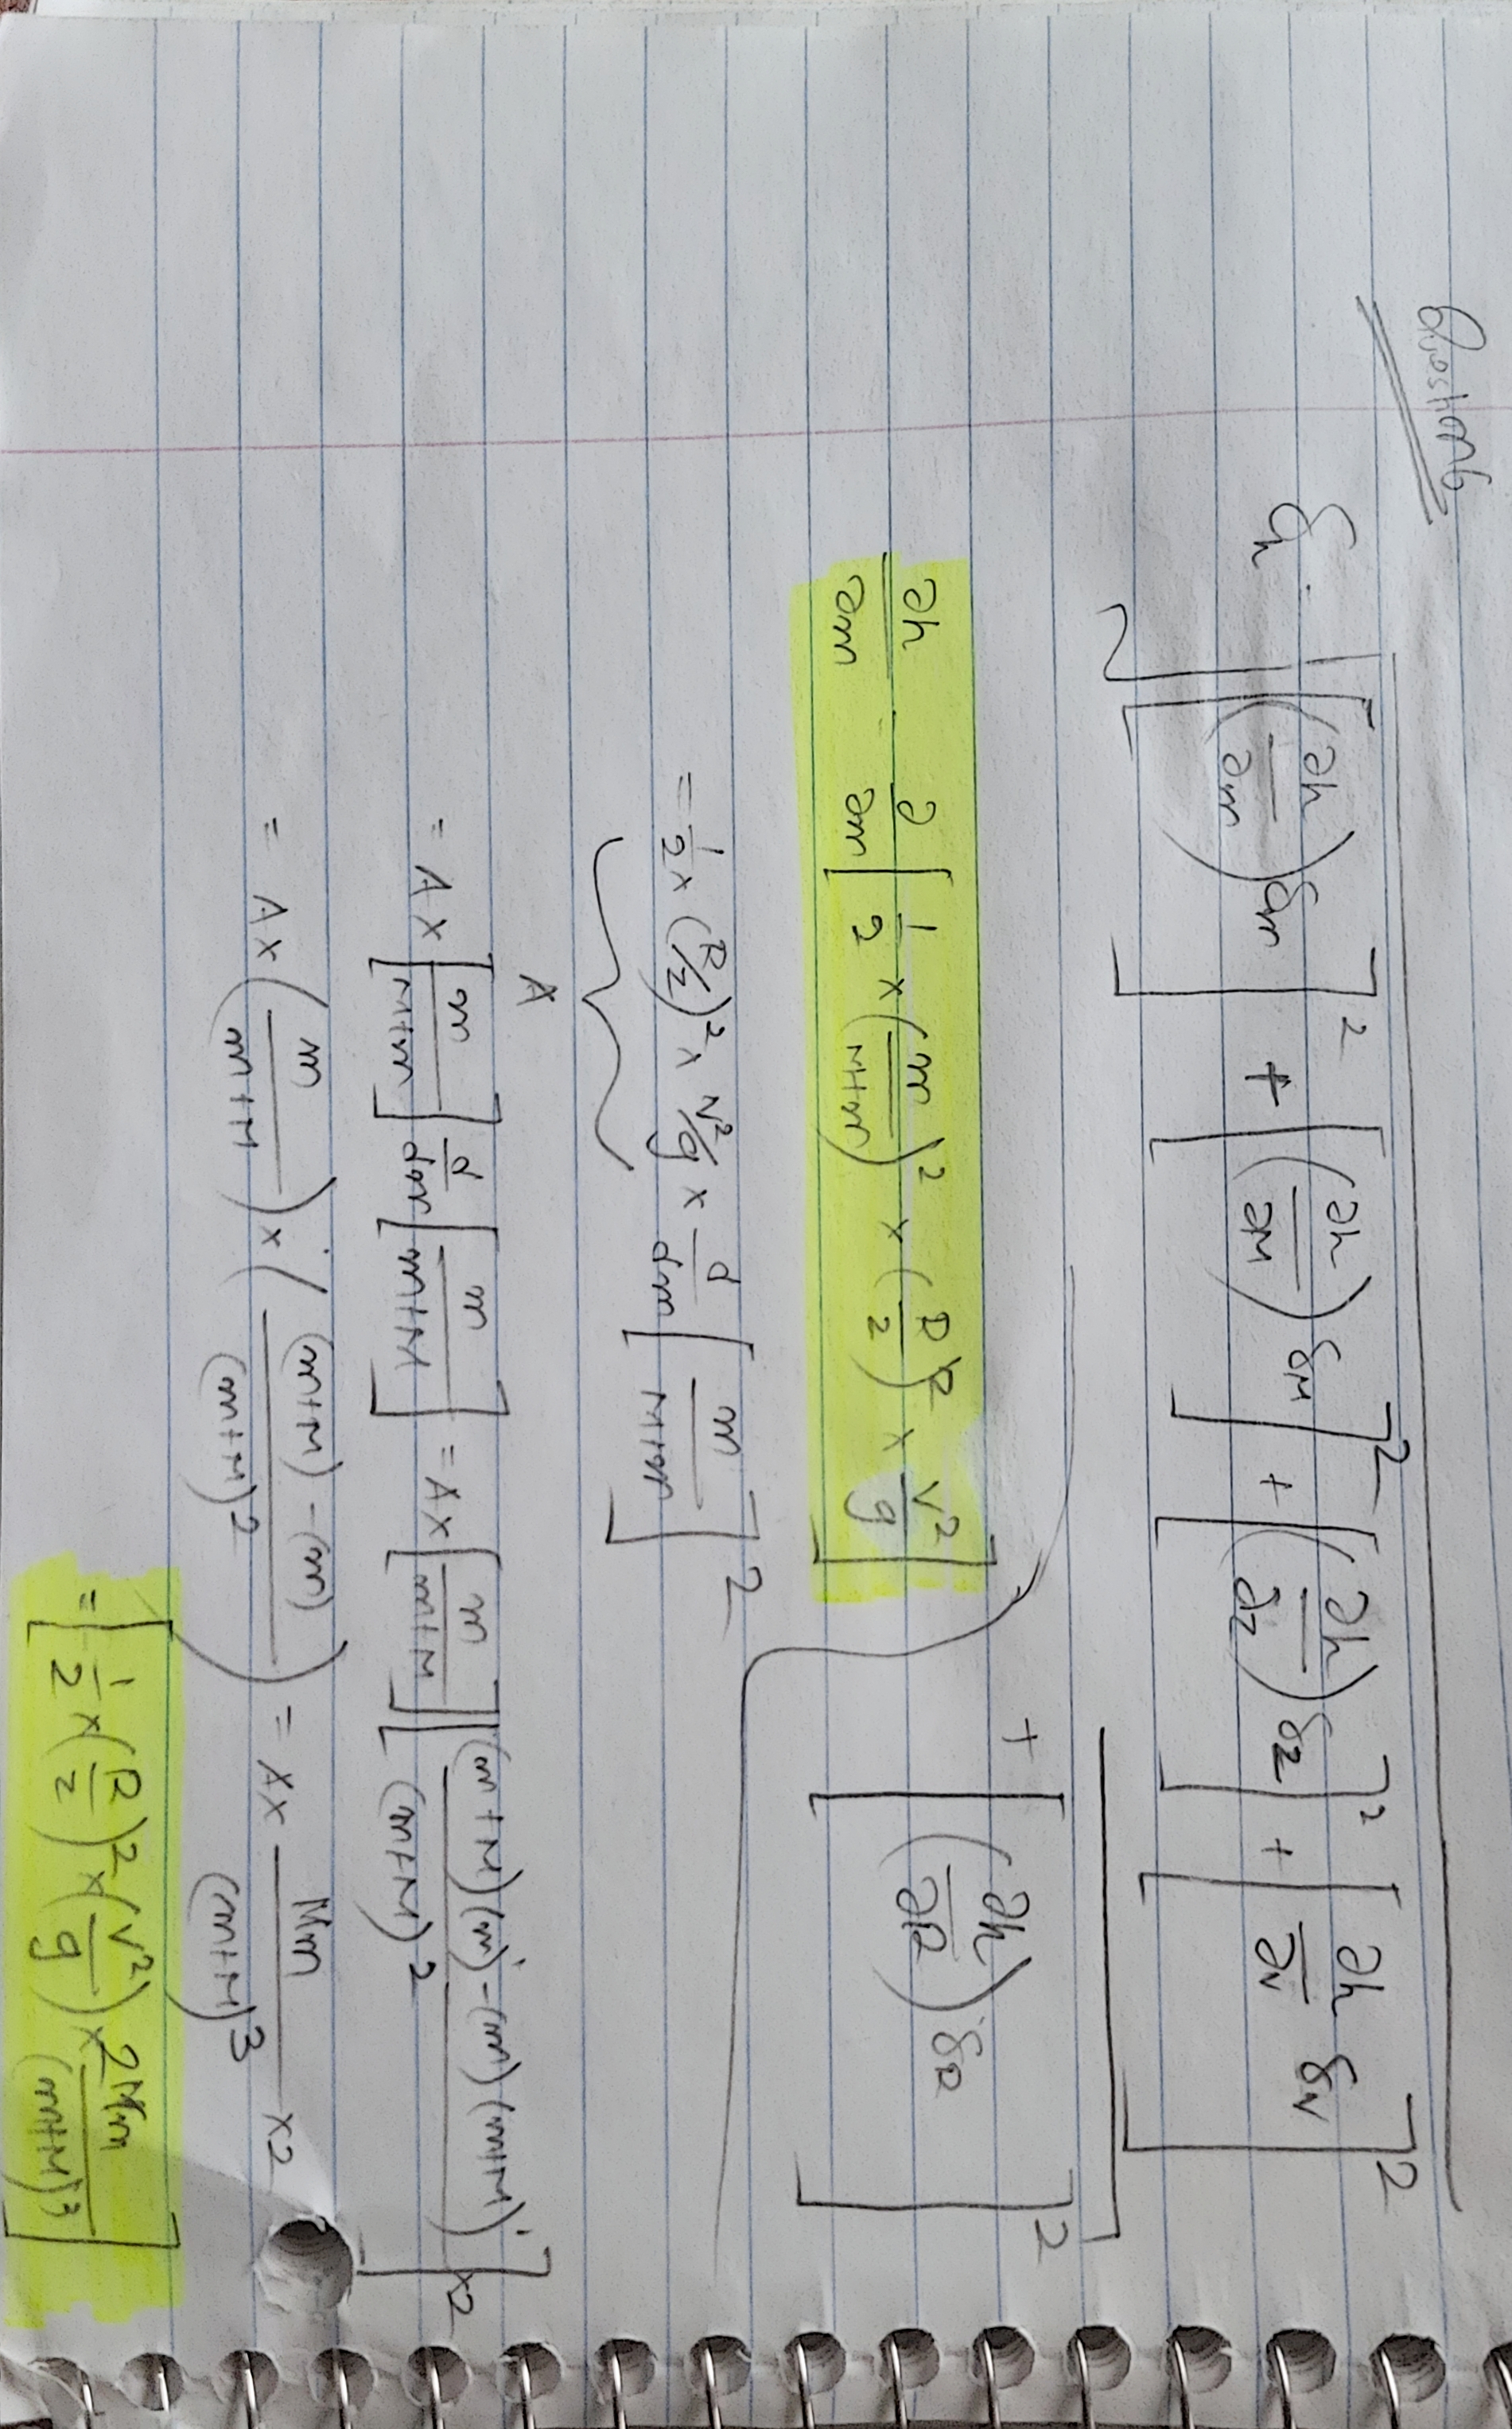 Question 6
δh = √[(∂h/∂m)δm]² + [(∂h/∂M)δM]² + [(∂h/∂z)δz]² + [∂h/∂v δv]²
+ [(∂h/∂R)δR]²
∂h/∂m = ∂/∂m[1/2 × (m/M+m)² × (R/z)² × v²/g]
= 1/2 × (R/z)² × v²/g × d/dm[m/M+m]²
A
= A × [m/M+m] d/dm[m/m+M] = A × [m/m+M][(m+M)(m)' - (m)(m+M)'/(m+M)²]×2
= A × (m/m+M) × ((m+M) - (m)/(m+M)²) = A × Mm/(m+M)³ ×2
= [1/2 × (R/z)² × (v²/g) × 2Mm/(m+M)³]